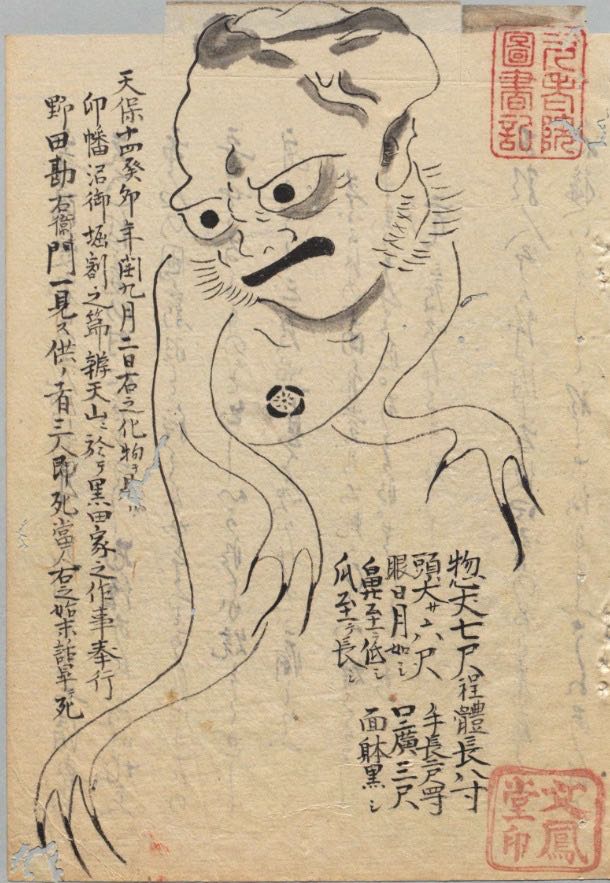 元老院
圖書記
惣丈七尺程體長八寸
頭大サ六尺 手長
眼日月如シ 口廣三尺
鼻至テ低シ 面躰黒シ
爪至テ長シ
天保十四癸卯年閏九月二日右之化物ヲ
印幡沼御堀割之節辨天山ニ於テ黒田家之作事奉行
野田勘右衛門一見ス供ノ者三人即死當人右之始末話畢テ死
文鳳
堂印